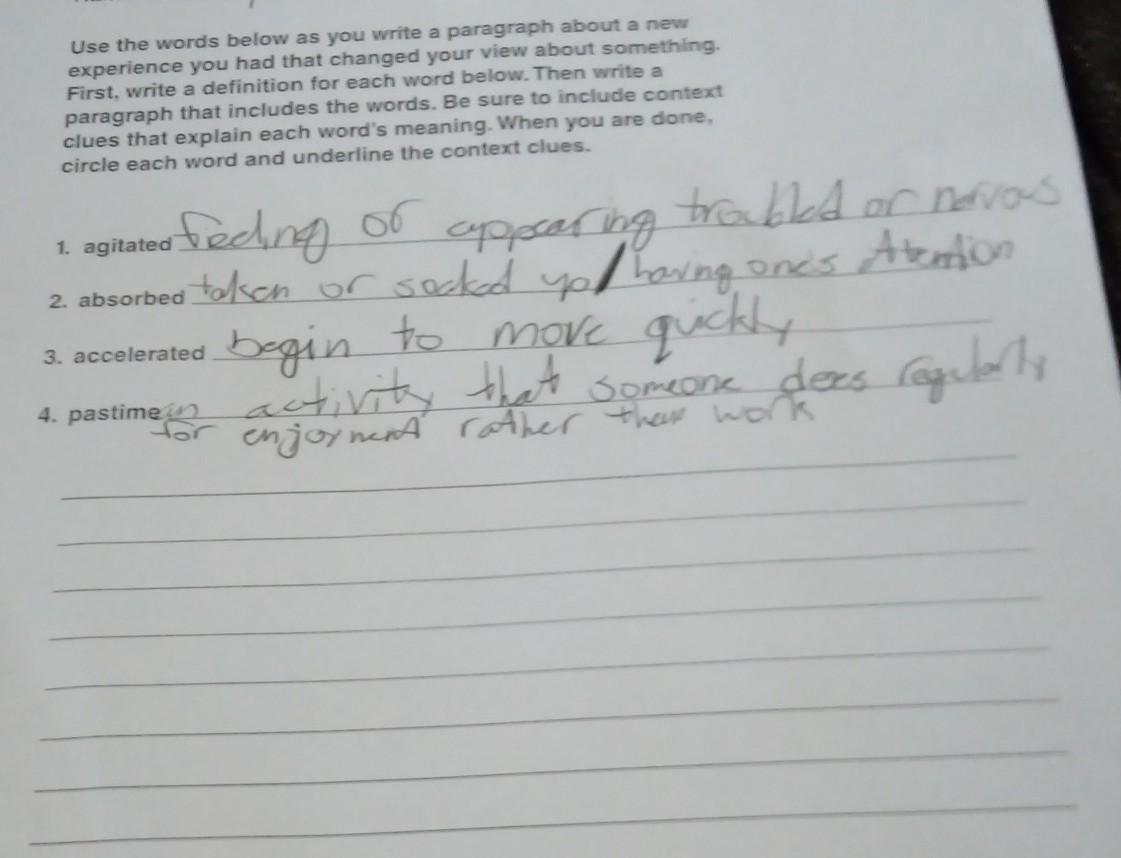 Use the words below as you write a paragraph about a new
experience you had that changed your view about something.
First, write a definition for each word below. Then write a
paragraph that includes the words. Be sure to include context
clues that explain each word's meaning. When you are done,
circle each word and underline the context clues.
1. agitated feeling or appearing troubled or nervous
2. absorbed taken or socked up/having one's Attention
3. accelerated begin to move quickly
4. pastime activity that someone does regularly
for enjoyment rather than work